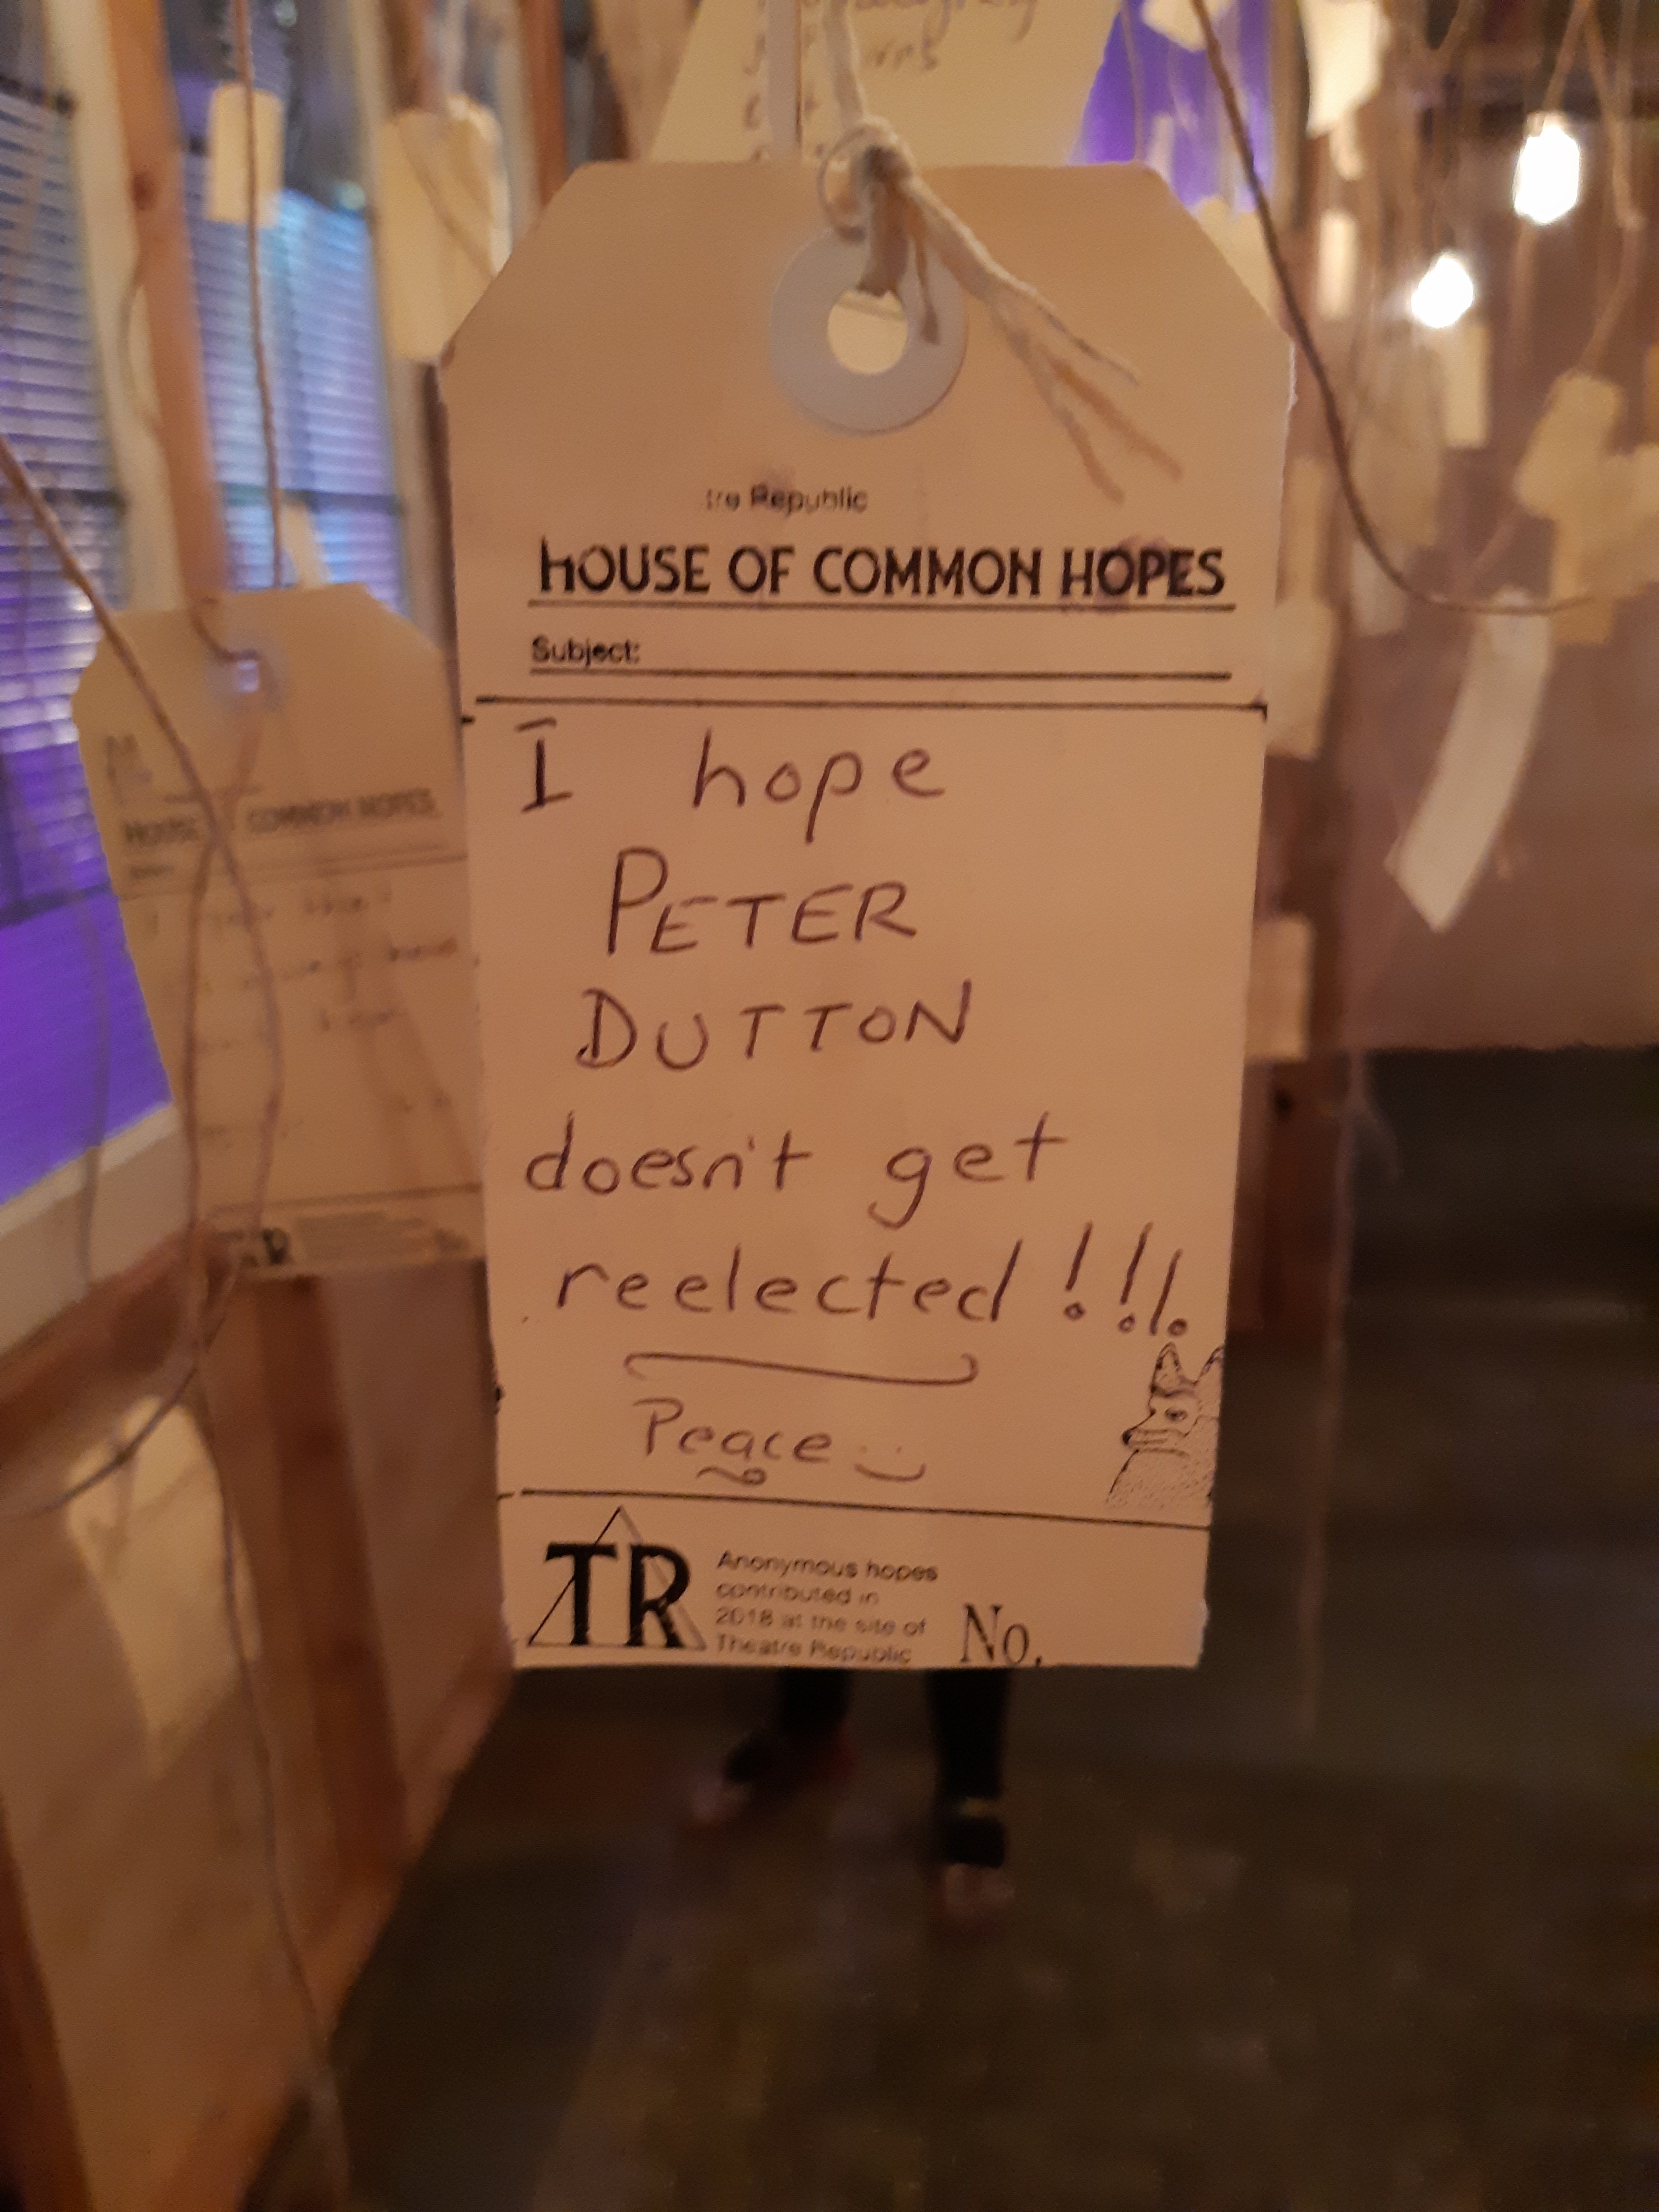 tre Republic
HOUSE OF COMMON HOPES
Subject:
I hope
PETER
DUTTON
doesn't get
reelected!!!
Peace
TR
Anonymous hopes
contributed in
2018 at the site of
Theatre Republic
No.
HOUSE COMMON HOPES